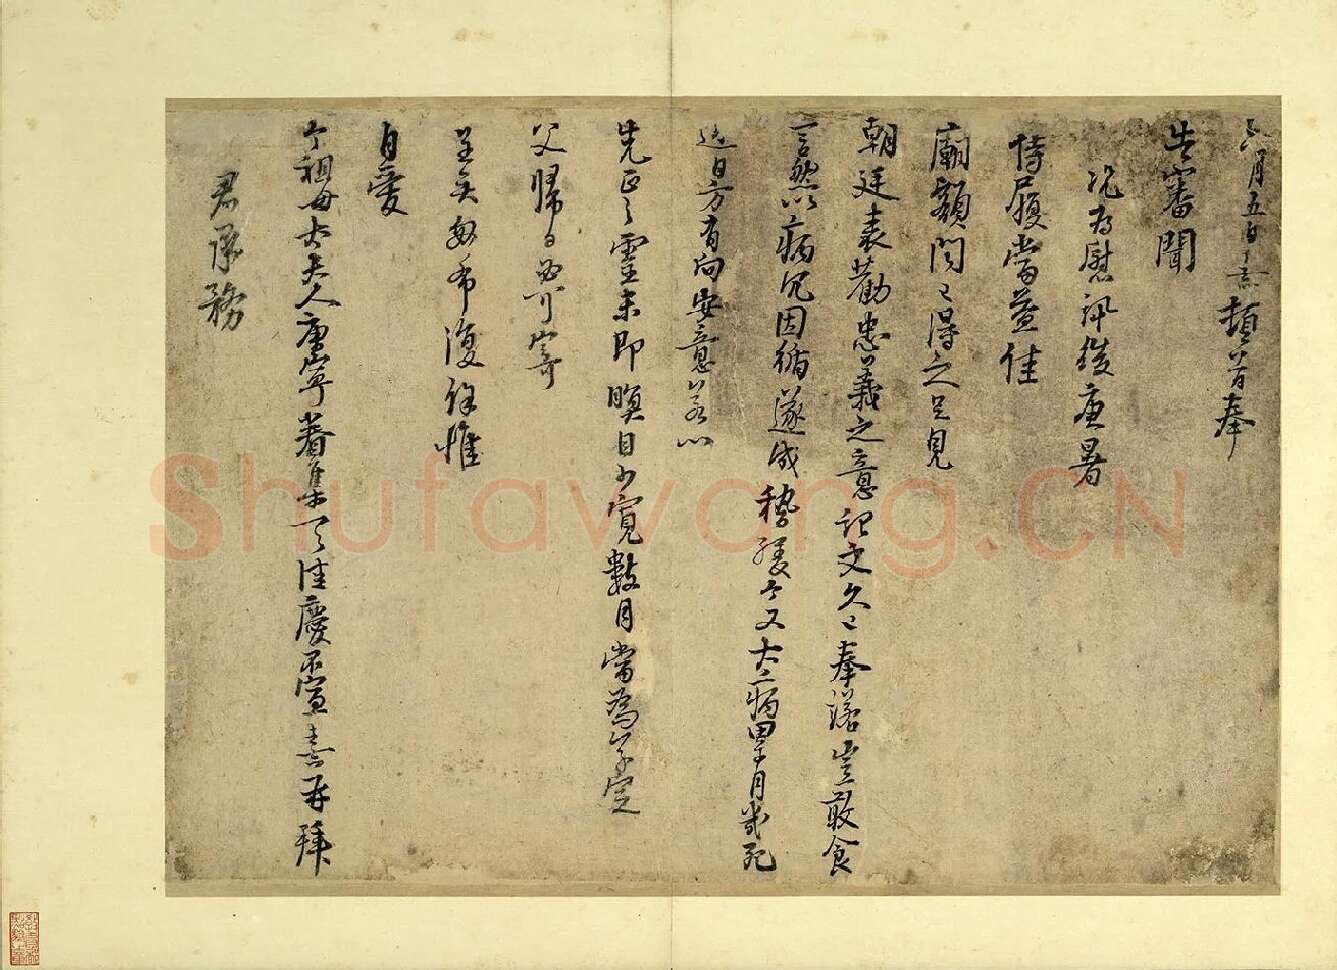 六月五日熹頓首奉
告審聞
比為慰訊後庚暑
侍履當益佳
廟額聞已得之足見
朝廷表勸忠義之意記文久已奉諾豈敢食
言然以病冗因循遂成稽緩今又大病半月幾死
近日方有向安意若以
先正之靈未即瞑目少寬數月當為草定
父歸日必可寄
呈矣匆布復餘惟
自愛
令祖母太夫人康寧眷集一一佳慶不宣熹再拜
君承務
Shufawang.CN